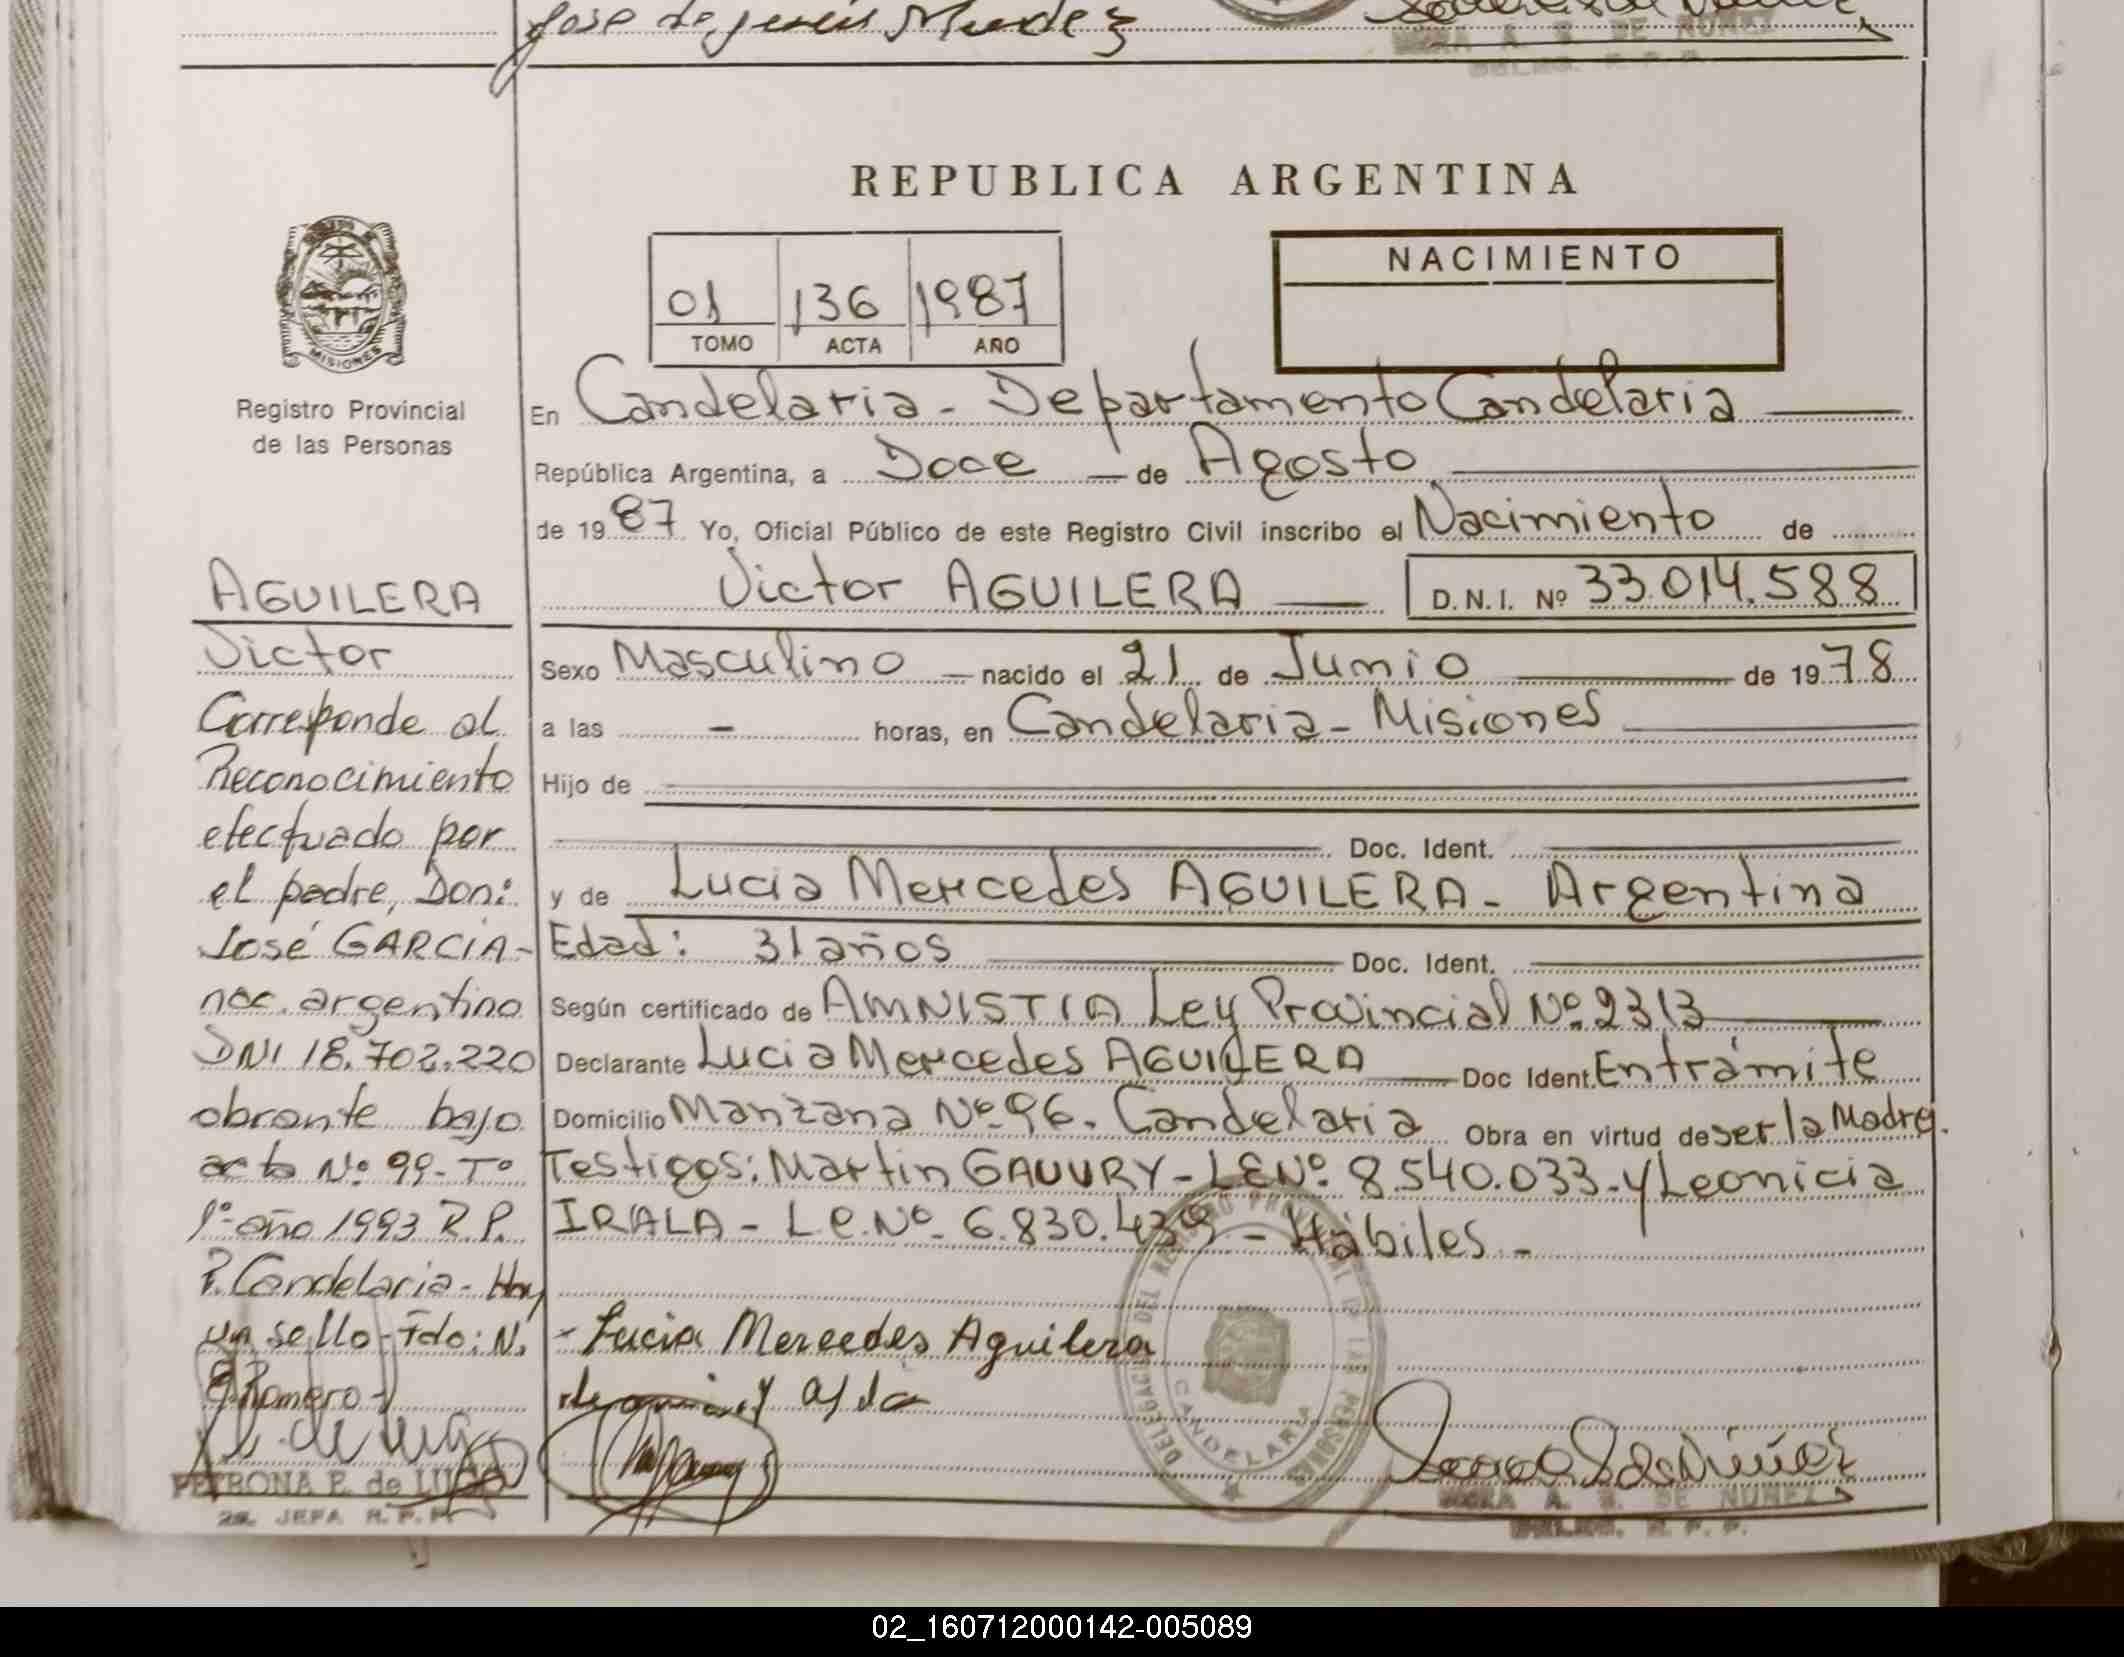 Jose de Jesus Mendez
A. S. DE NUÑEZ
DELEG. R. P. P.
REPUBLICA ARGENTINA
MISIONES
01 136 1987
TOMO ACTA AÑO
NACIMIENTO
Registro Provincial
de las Personas
En Candelaria - Departamento Candelaria
República Argentina, a Doce — de Agosto
de 1987 Yo, Oficial Público de este Registro Civil inscribo el Nacimiento de
Victor AGUILERA — D.N.I. Nº 33.014.588
Sexo Masculino — nacido el 21 de Junio de 1978
a las - horas, en Candelaria - Misiones
Hijo de
Doc. Ident.
y de Lucia Mercedes AGUILERA - Argentina
Edad: 31 años Doc. Ident.
Según certificado de AMNISTIA Ley Provincial Nº 2313
Declarante Lucia Mercedes AGUILERA Doc Ident. En trámite
Domicilio Manzana Nº 96. Candelaria Obra en virtud de ser la Madre.
Testigos: Martin GAUVRY - LE Nº 8.540.033 - y Leonicia
IRALA - L.C. Nº 6.830.439 - Hábiles -
- Lucia Mercedes Aguilera
AGUILERA
Victor
Corresponde al
Reconocimiento
efectuado por
el padre, Don:
José GARCIA -
nac. argentino
DNI 18.702.220
obrante bajo
acta Nº 99 - Tº
1º año 1993 R.P.
P. Candelaria - Hay
un sello - Fdo: N.
E. Romero -
PETRONA E. de LUGO
2a. JEFA R.P.P.
DELEGACION DEL REGISTRO PROVINCIAL DE LAS PERSONAS
CANDELARIA
A. S. DE NUÑEZ
DELEG. R. P. P.
02_160712000142-005089